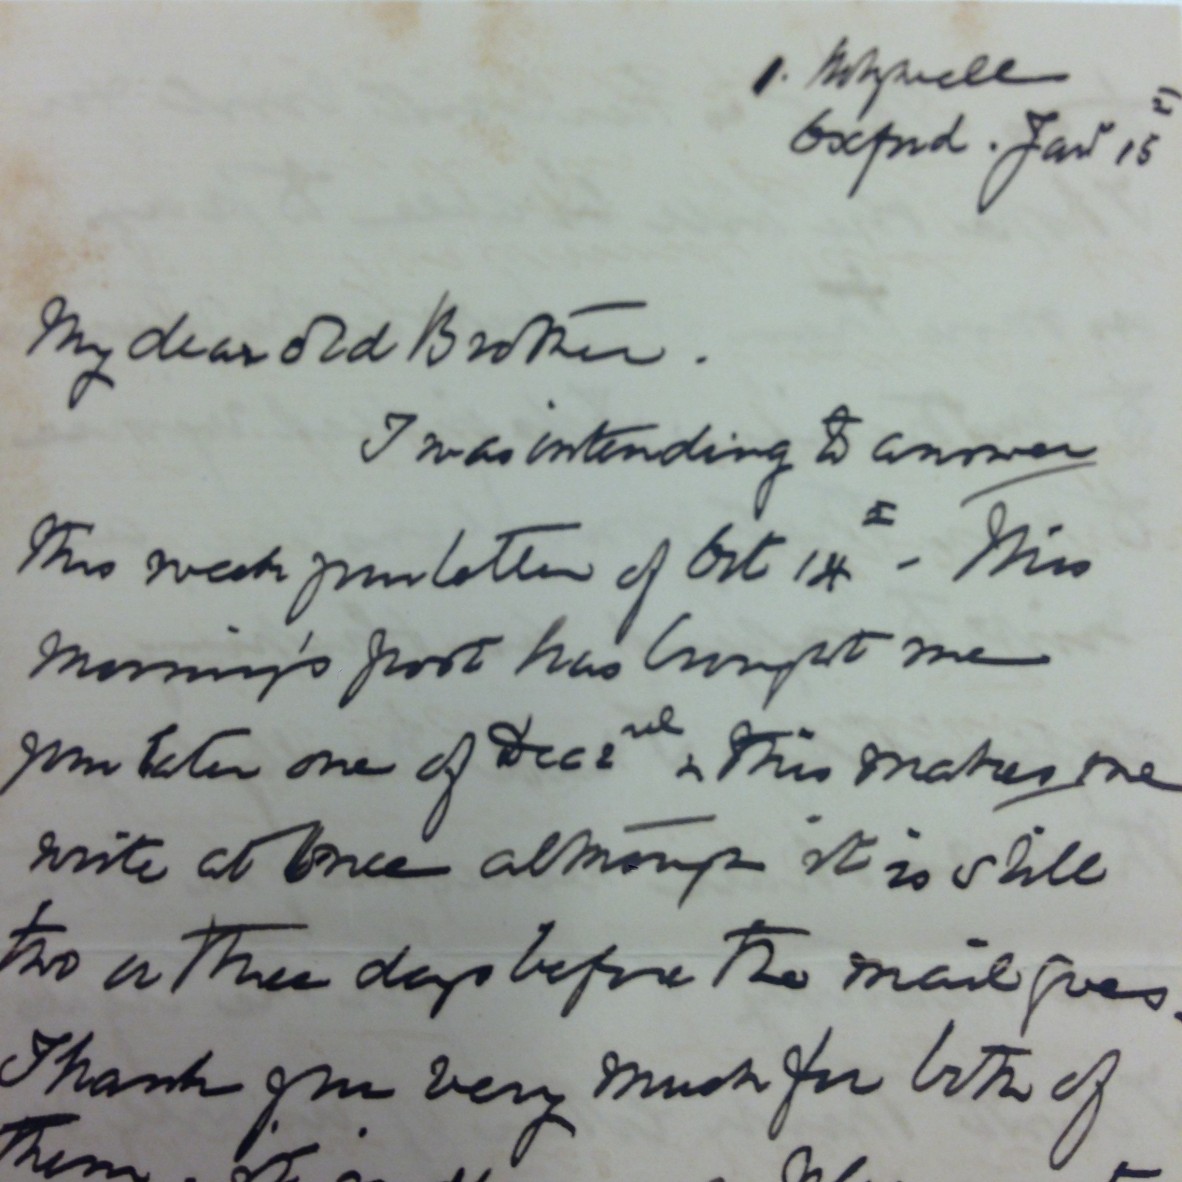 1. Holywell
Oxford. Jany 15
My dear old Brother.
I was intending to answer
this week your letter of Oct 14th - This
morning's post has brought me
your later one of Dec 2nd & this makes me
write at once although it is still
two or three days before the mail goes.
Thank you very much for both of
them.